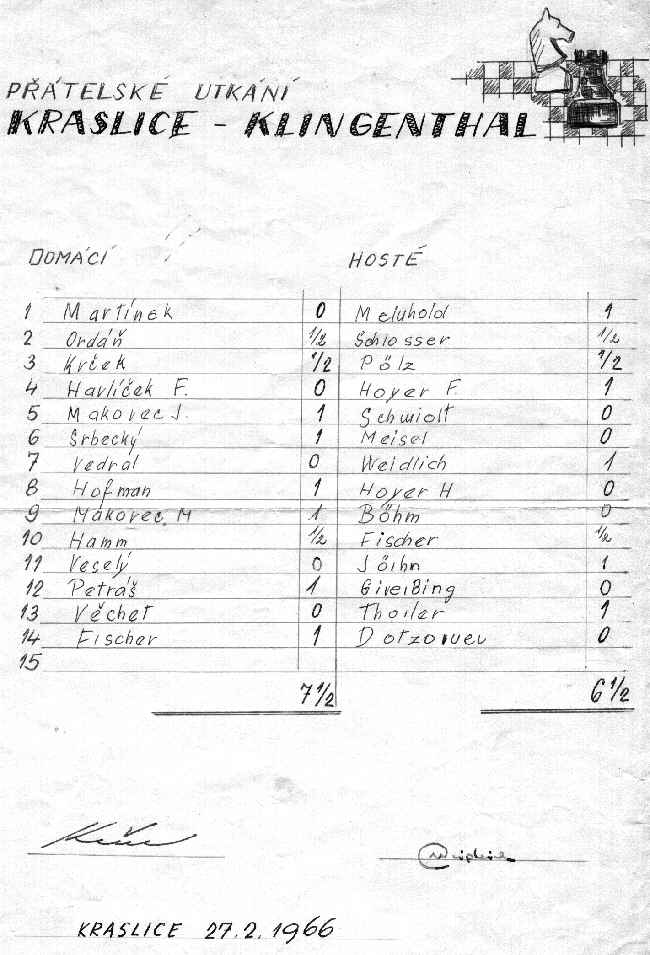 PŘÁTELSKÉ UTKÁNÍ
KRASLICE - KLINGENTHAL
DOMÁCÍ HOSTÉ
1 Martínek 0 Meluhold 1
2 Ordáň 1/2 Schlosser 1/2
3 Krček 1/2 Pölz 1/2
4 Havlíček F. 0 Hoyer F. 1
5 Makovec J. 1 Schmidt 0
6 Srbecký 1 Meisel 0
7 Vedrál 0 Weidlich 1
8 Hofman 1 Hoyer H 0
9 Makovec M 1 Böhm 0
10 Hamm 1/2 Fischer 1/2
11 Veselý 0 1
12 Petráš 1 0
13 Věchet 0 Thoiler 1
14 Fischer 1 0
15
7 1/2 6 1/2
KRASLICE 27.2.1966